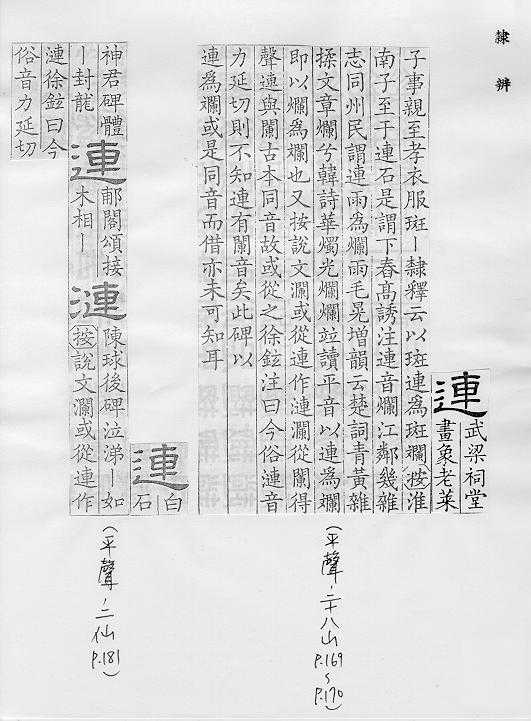 隸辨
連
武梁祠堂
畫象老萊
子事親至孝衣服斑丨隸釋云以斑連為斑斕按淮
南子至于連石是謂下舂高誘注連音爛江鄰幾雜
志同州民謂連雨為爛雨毛晃增韻云楚詞青黃雜
揉文章爛兮韓詩華燭光爛爛竝讀平音以連為斕
即以爛為斕也又按說文瀾或從連作漣瀾從闌得
聲連與闌古本同音故或從之徐鉉注曰今俗漣音
力延切則不知連有闌音矣此碑以
連為斕或是同音而借亦未可知耳
(平聲、二十八山 p.169~p.170)
連
白
石
神君碑體
丨封龍
連
郙閣頌接
木相丨
漣
陳球後碑泣涕丨如
按說文瀾或從連作
漣徐鉉曰今
俗音力延切
(平聲、二仙 p.181)